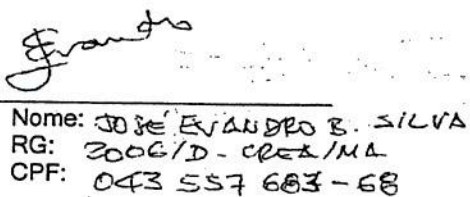 Evandro
Nome: JOSÉ EVANDRO B. SILVA
RG: 2006/D - CREA/MA
CPF: 043 557 683 - 68